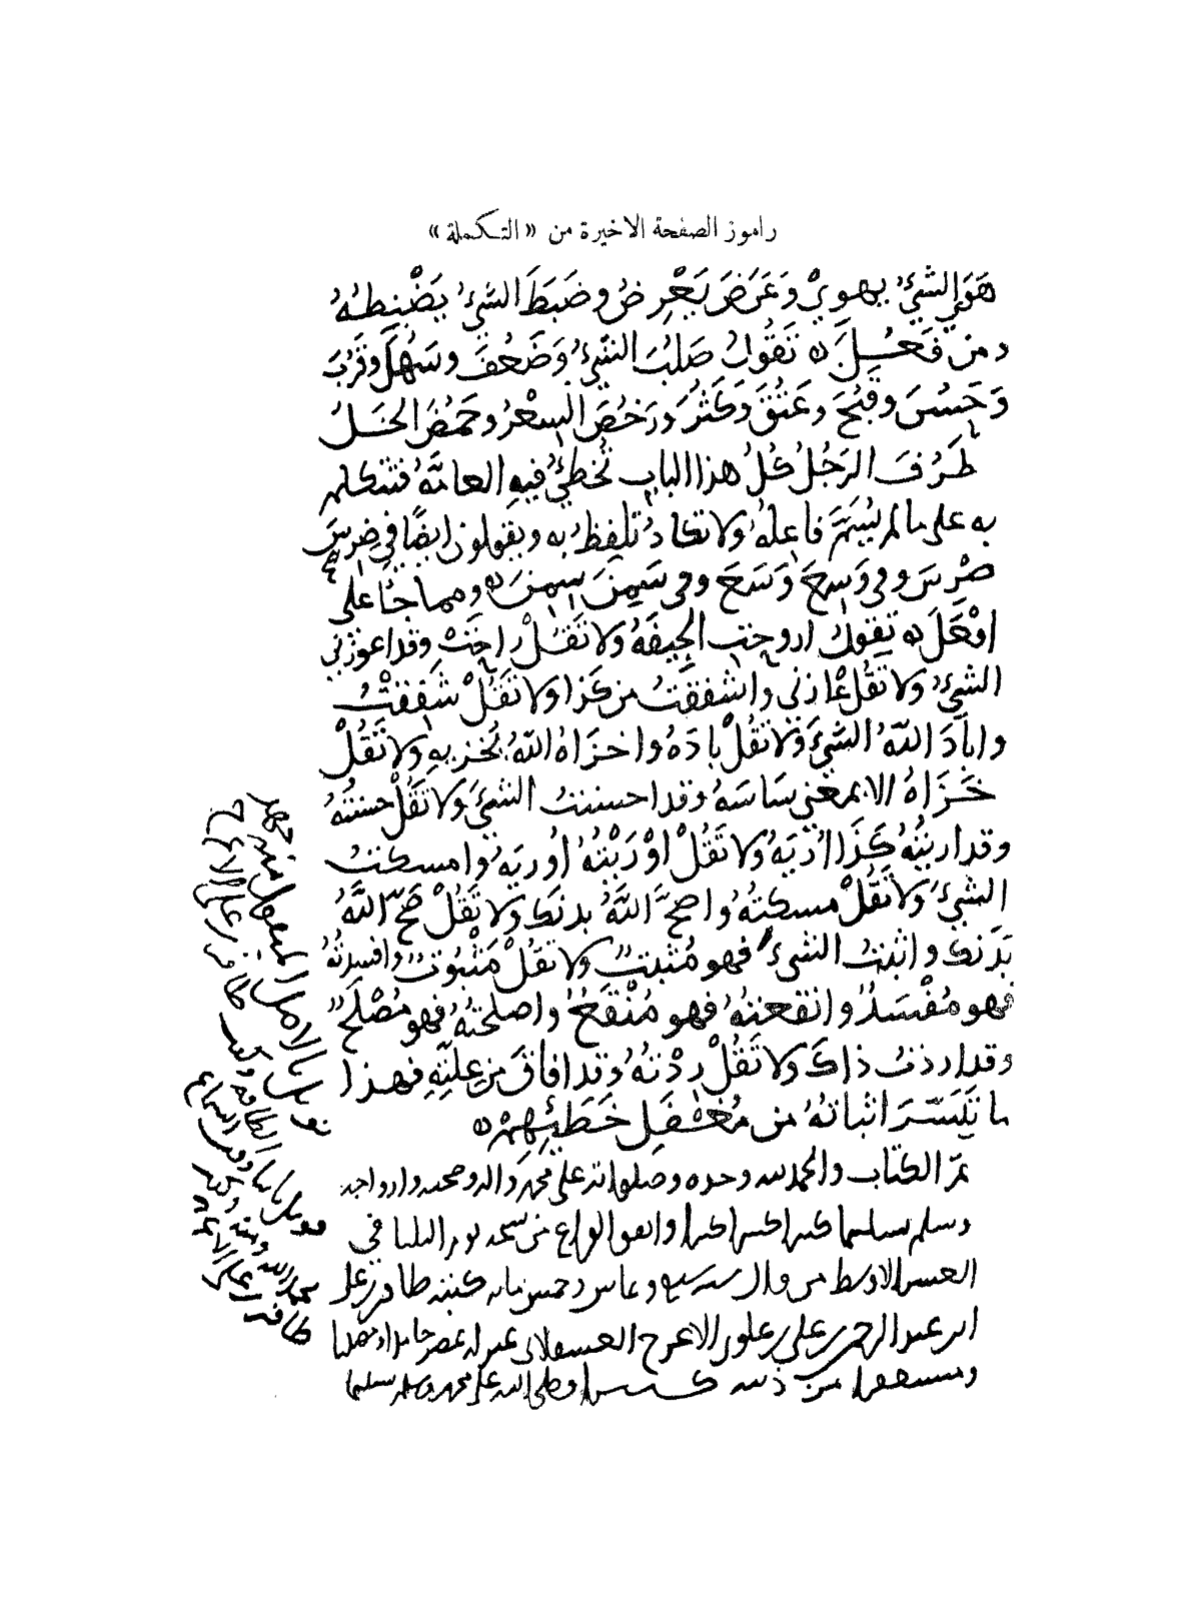 راموز الصفحة الاخيرة من «التكملة»
هَوَى الشيءُ يهوِيْ وَعَرَضَ يَعْرِضُ وضَبَطَ الشيءُ يَضْبِطهُ
ومن فَعُلَ تَقُولُ صَلُبَ الشيءُ وَضَعُفَ وسَهُلَ وقَرُبَ
وَحَسُنَ وقَبُحَ وعَتُقَ وَكَثُرَ ورَخُصَ السِعْرُ وحَمُضَ الخَلُّ
ظَرُفَ الرَجُلُ كُلُ هذا الباب تُخطِئُ فيهِ العامَّةُ فتتكلم
به على مالم يُسَمَّ فاعِلهُ ولا تكادُ تلفِظُ به ويقولون ايضًا في ضَرِسَ
ضِرْسَ وفي وَسِعَ وَسَعَ وفي سَمِنَ سِمِنَ ومما جَاءَ على
افْعَلَ تقولُ اروحَتِ الجِيفَةُ ولا تَقُلْ راحَتْ وقد اعوزني
الشيءُ ولا تقُل عَازني واشفقتُ من كَذا ولا تَقُلْ شَفِقتُ
وابَادَ اللهُ الشيءَ ولا تقُلْ بادَهُ واخزَاهُ اللهُ يُخزيهِ ولا تَقُلْ
خَزَاهُ الا بمعنى سَاسَهُ وقد احسستُ الشيءَ ولا تَقُلْ حسسْتُهُ
وقد اريتُهُ كَذَا اُرِيَهُ ولا تَقُلْ اوْرَيْتُهُ اُورِيَهُ وامسكتُ
الشيءَ ولا تَقُلْ مسكتهُ واصحَّ اللهُ بدنَكَ ولا تَقُلْ صَحَّ اللهُ
بَدَنَكَ واثبتُ الشيءَ فهو مُثبتٌ ولا تقُلْ مَثْبُوتٌ وافسدتُهُ
فهو مُفْسَدٌ وانقعتهُ فهو مُنْقَعٌ واصلحتهُ فهو مُصْلَحٌ
وقد اردتُ ذاكَ ولا تَقُلْ ردْتهُ وقد افاقَ من عِلتِهِ فهذا
ما تَيَسَّرَ اثباتهُ من مُغْفَلِ خَطَئِهِمْ
تم الكتاب والحمد لله وحده وصلواته على محمد واله وصحبه وازواجه
وسلم تسليما كثيرا كثيرا كثيرا واتفق الفراغ من نسخه يوم الثلثا في
العشر الاوسط من شوال سنه سبع وخمس مايه كتبه ظافر بن علي
ابن عبد الرحمن بن علي بن علوي الاعرج العسقلاني
ومستغفرا من ذنبه كثيرا وصلى الله على محمد وسلم تسليما
قوبل بالاصل المنقول منه
وكتب ظافر بن علي الاعرج
قوبل
بحمد الله ومنه وكتب
ظافر بن علي الاعرج